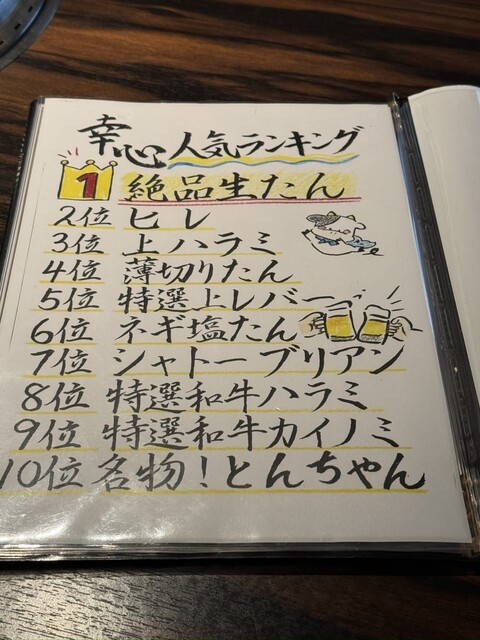 幸心 人気ランキング
1 絶品生たん
2位 ヒレ
3位 上ハラミ
4位 薄切りたん
5位 特選上レバー
6位 ネギ塩たん
7位 シャトーブリアン
8位 特選和牛ハラミ
9位 特選和牛カイノミ
10位 名物!とんちゃん